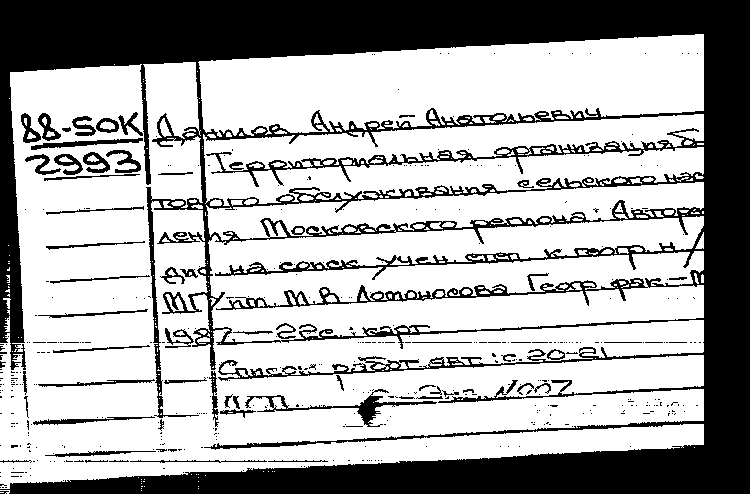 88-50K
2993
Данилов, Андрей Анатольевич
Территориальная организация б
тового обслуживания сельского нас
ления Московского региона: Авторе
дис. на соиск учен. степ к. геогр. н /
МГУ им. М.В Ломоносова Геогр. фак. — М
1987. — 22с. : карт
Список работ авт : с. 20-21
ДСП. Экз. N007